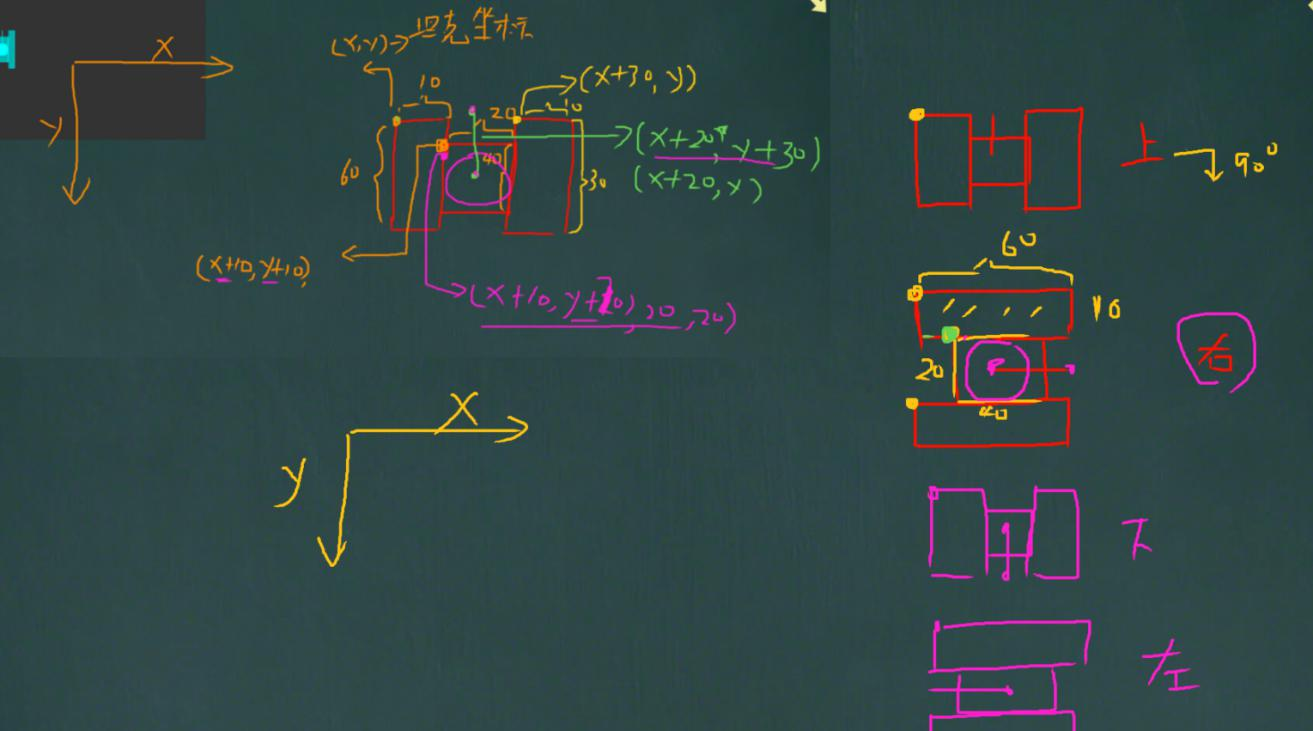 X
y
(X,Y)→坦克坐标
10
20
10
(X+30, y)
60
40
30
(X+20, y+30)
(X+20, y)
(X+10, y+10)
(X+10, y+10), 20, 20)
X
y
上
90°
60
10
20
40
右
下
左